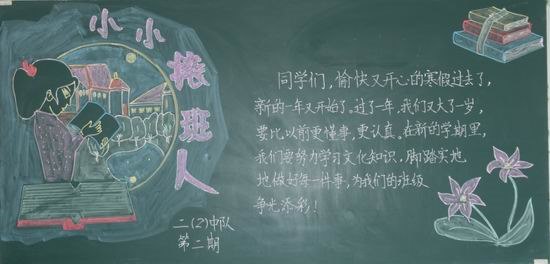 小小接班人
同学们，愉快又开心的寒假过去了，
新的一年又开始了。过了一年，我们又大了一岁，
要比以前更懂事，更认真。在新的学期里，
我们要努力学习文化知识，脚踏实地
地做好每一件事，为我们的班级
争光添彩！
二(2)中队
第二期